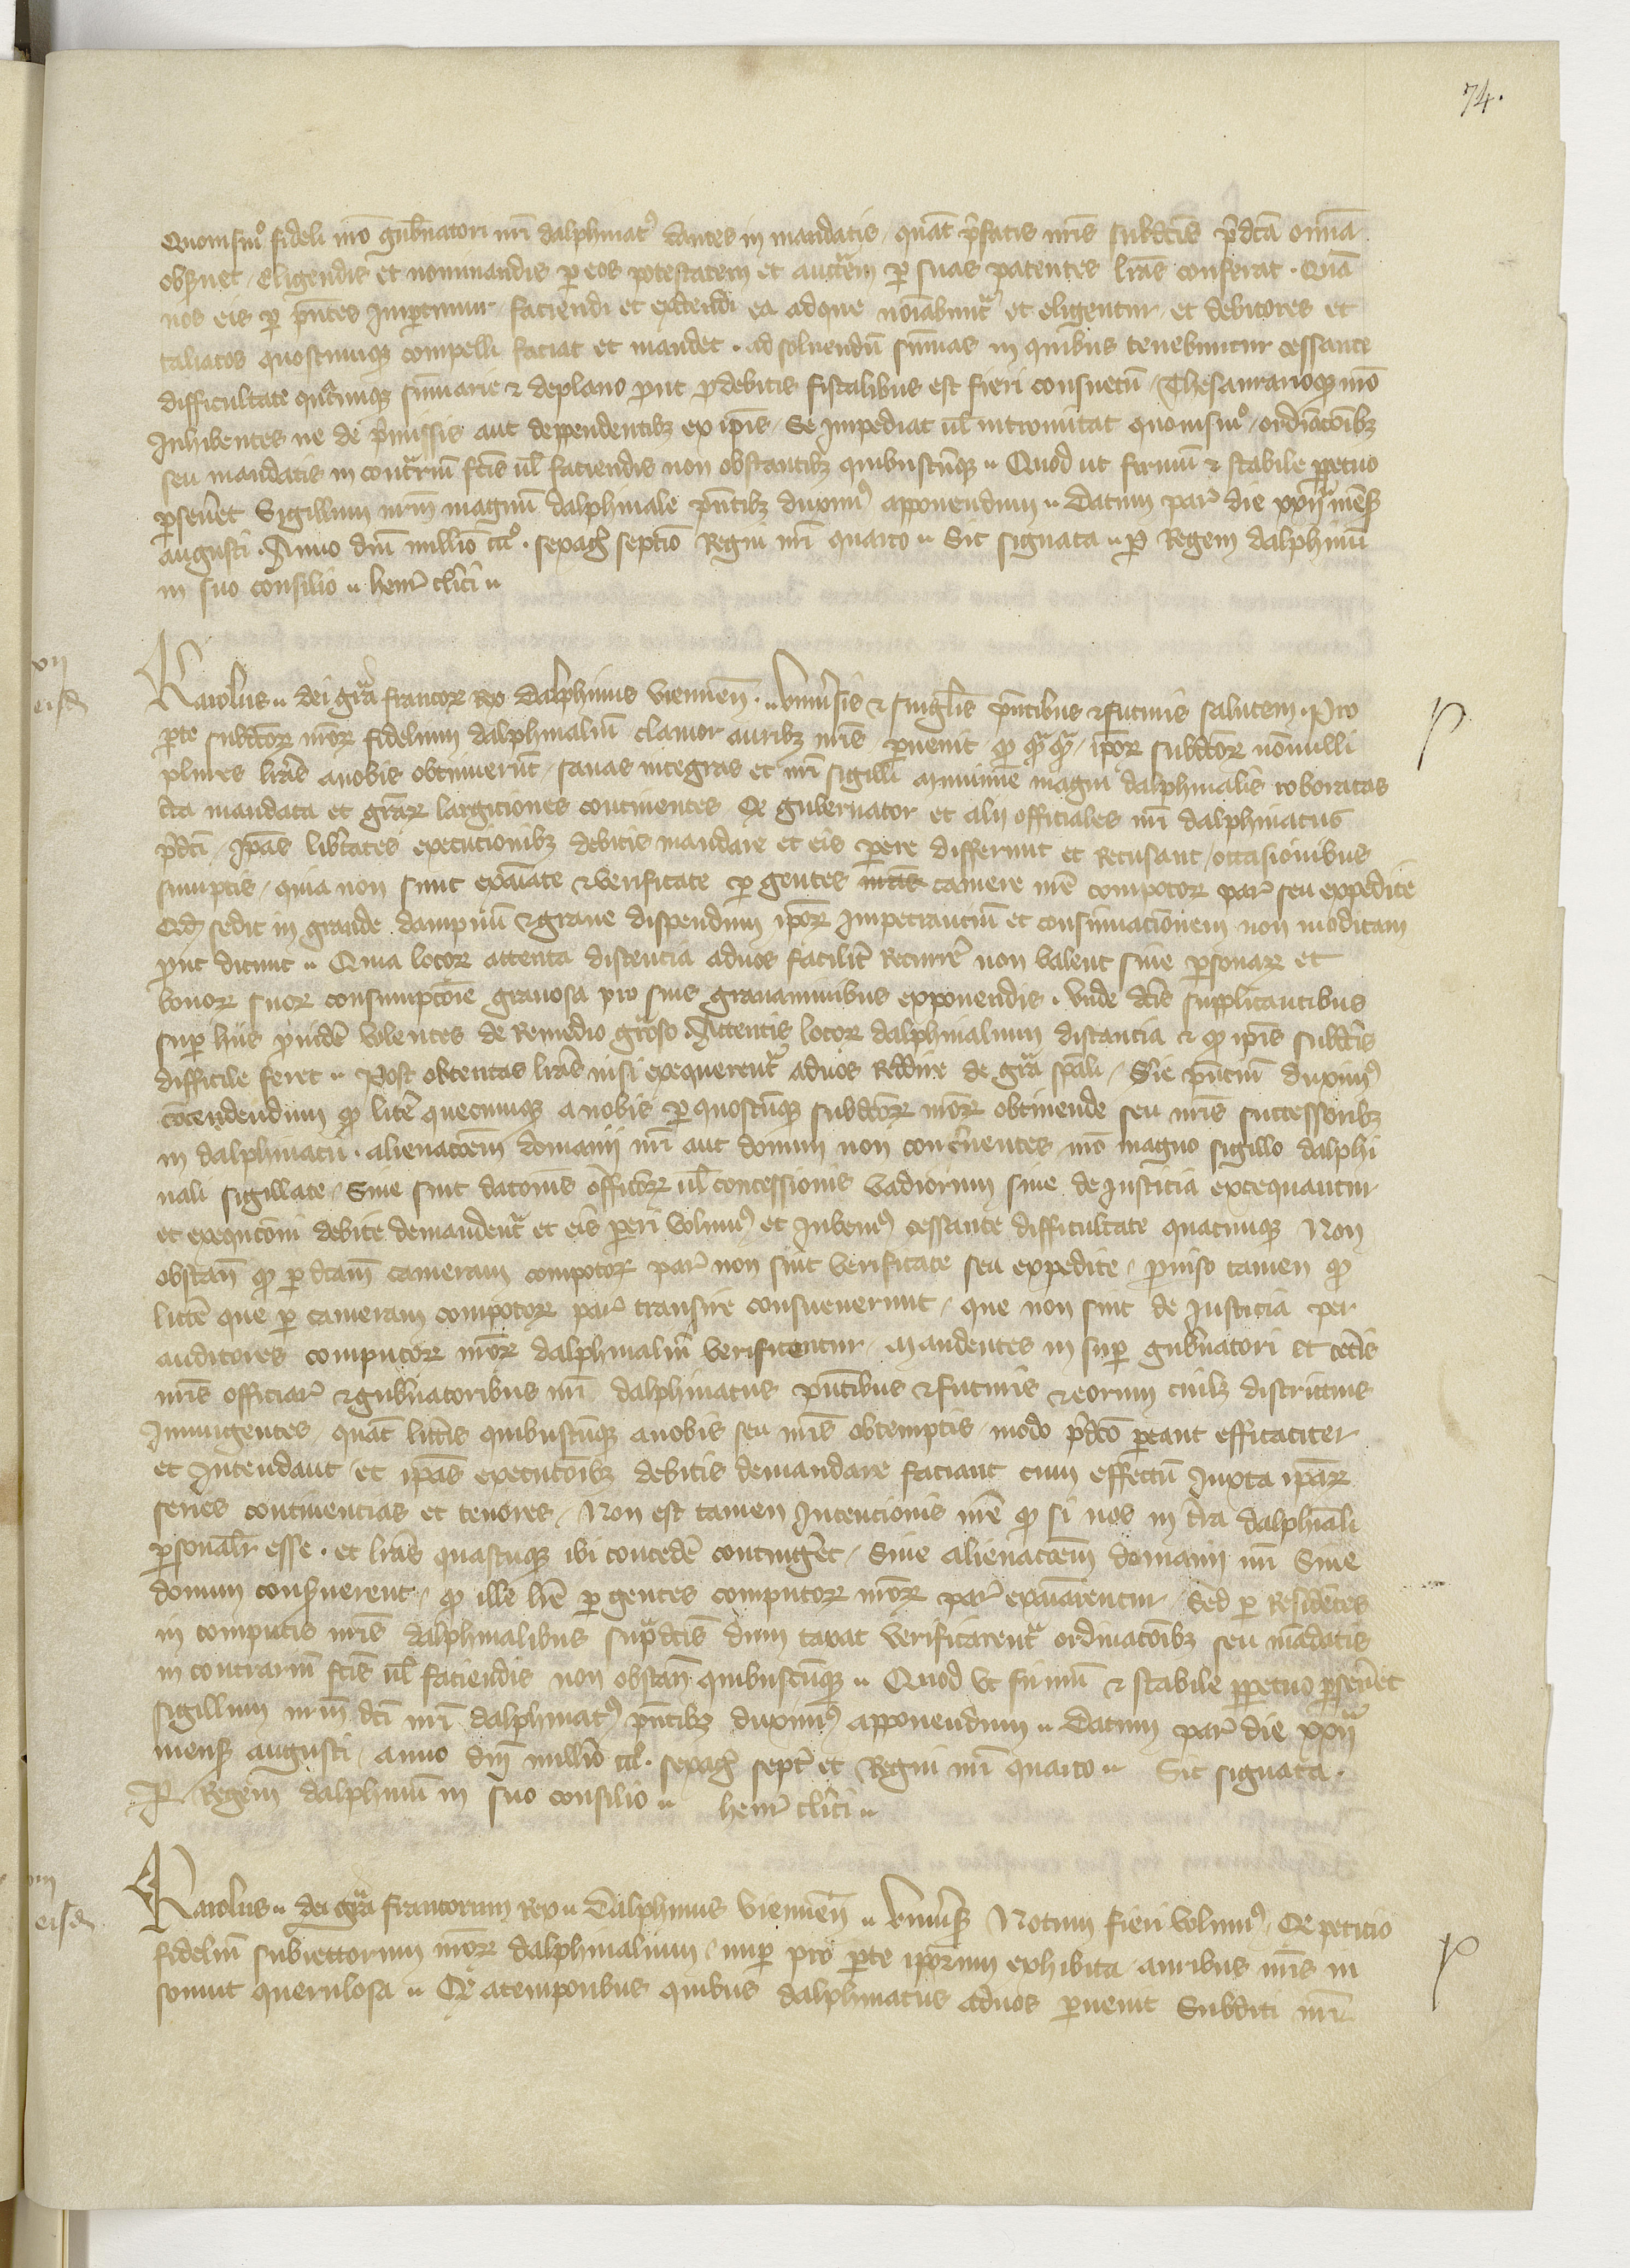 74.
quouismo fideli nro gubnatori nri dalphinat9 dantes in mandatis / quat prefatis nris subdctis predcta omnia
observet / eligendis et nominandis per eos potestatem et auctem per suas patentes lras conferat . Quam
nos eis per pntes impertimur / faciendi et exercendi ea ad que noiabuntur et eligentur / et debitores et
taliatos quoscumque compelli faciat et mandet . ad solvendu summas in quibus tenebuntur cessante
difficultate quacumque summarie et deplano prout pro debitis fiscalibus est fieri consuetu / Thesaurarioque nro
Inhibentes ne de premissis aut deppendentibz ex ipis / Se Impediat vel intromittat quouismo / ordinacoibz
seu mandatis in contrarium fctis vel faciendis non obstantibz quibuscumque .. Quod ut firmu et stabile perpetuo
perseveret Sigillum nrm magnu dalphinale pntibz duxim9 apponendum .. Datum par die xxij mens
augusti . Anno dni millio ccco . sexag septio Regni nri quarto .. Sic signata .. P Regem dalphinu
in suo consilio .. henr clici ..
vij
eisd
Karolus .. dei gra francor Rex Dalphinus viennen . .. universis et singlis pntibus et futuris salutem . Pro
pte subdctor nror fidelium dalphinaliu clamor auribz nris pervenit / quod / ipor subdctor nonnulli
plures lras a nobis obtinuerut / sanas integras et nri sigilli munimine magni dalphinalis roboratas
dta mandata et grar largiciones continentes Qr gubernator et alij officiales nri dalphinatus
predcti / Ipas libertates execucionibz debitis mandare et eis parere differunt et Recusant / occasionibus
sumptis / quia non sunt examinate et verificate per gentes nras camere nre compotor par seu expedite
Qd sedit in grande dampnu et grave dispendium ipor Impetranciu et consumacionem non modicam
prout dicunt .. Quia locor attenta distencia ad nos facilit Recurre non valent sine personar et
bonor suor consumpcoie gravosa pro suis gravaminibus exponendis . Unde dctis supplicantibus
super hiis providere volentes de Remedio groso . Attentis locor dalphinalium distancia et quod ipis subdctis
difficile foret .. Post obtentas lras nisi exequerentur ad nos Reddire de gra spali / Sie pntiu duxim9
concedendum quod litere quecumque a nobis per quoscumque subdctor nror obtinende seu nris successoribz
in dalphinatu . alienacoem domanij nri aut donum non concernentes / nro magno sigillo dalphi
nali sigillate / Sive sint dationis officior vel concessionis vadiorum sive de Iusticia exequantur
et execucioni debite demandentur et eis pareri volum9 et Iubem9 cessante difficultate quacumque Non
obstan quod per dctam cameram compotor par non sint verificate seu expedite / proviso tamen quod
littere que per cameram compotor par transire consueverunt / que non sint de Iusticia per
auditores computor nror dalphinaliu verificentur / Mandentes in super gubnatori et cetis
nris officiar et gubnatoribus nri dalphinatus pntibus et futuris et eorum cuilz districtius
Iniungentes / quat litteris quibuscumque a nobis seu nris obtemptis / modo predcto pareant efficaciter
et Intendant / et ipas execucoibz debitis demandare faciant cum effectu Iuxta ipar
series continencias et tenores / Non est tamen Intencionis nre quod si nos in tra dalphinali
personalr esse . et lras quascumque ibi concede contingeret / Sive alienacoem domanij nri Sive
donum conservent / quod ille lre per gentes computor nror par examinarentur / Sed per Residentes
in computis nris dalphinalibus supradctis dum taxat verificarentur ordinacoibz seu mandatis
in contrariu fctis vel faciendis non obstan quibuscumque .. Quod ut firmu et stabile perpetuo perseveret
sigillum nrm dcti nri dalphinat9 pntibz duxim9 apponendum .. Datum par die xxij
mens augusti / anno dni millio ccc . sexag sept et Regni nri quarto .. Sic signata .
P Regem dalphinu in suo consilio .. henr clici ..
eisd
Karolus .. dei gra francorum Rex .. Dalphinus viennen .. univers Notum fieri volum9 / Qr peticio
fideliu subiectorum nror dalphinalium / nuper pro parte iporum exhibita / auribus nris in
sonuit querulosa .. Qr a temporibus quibus dalphinatus ad nos pervenit Subditi nri